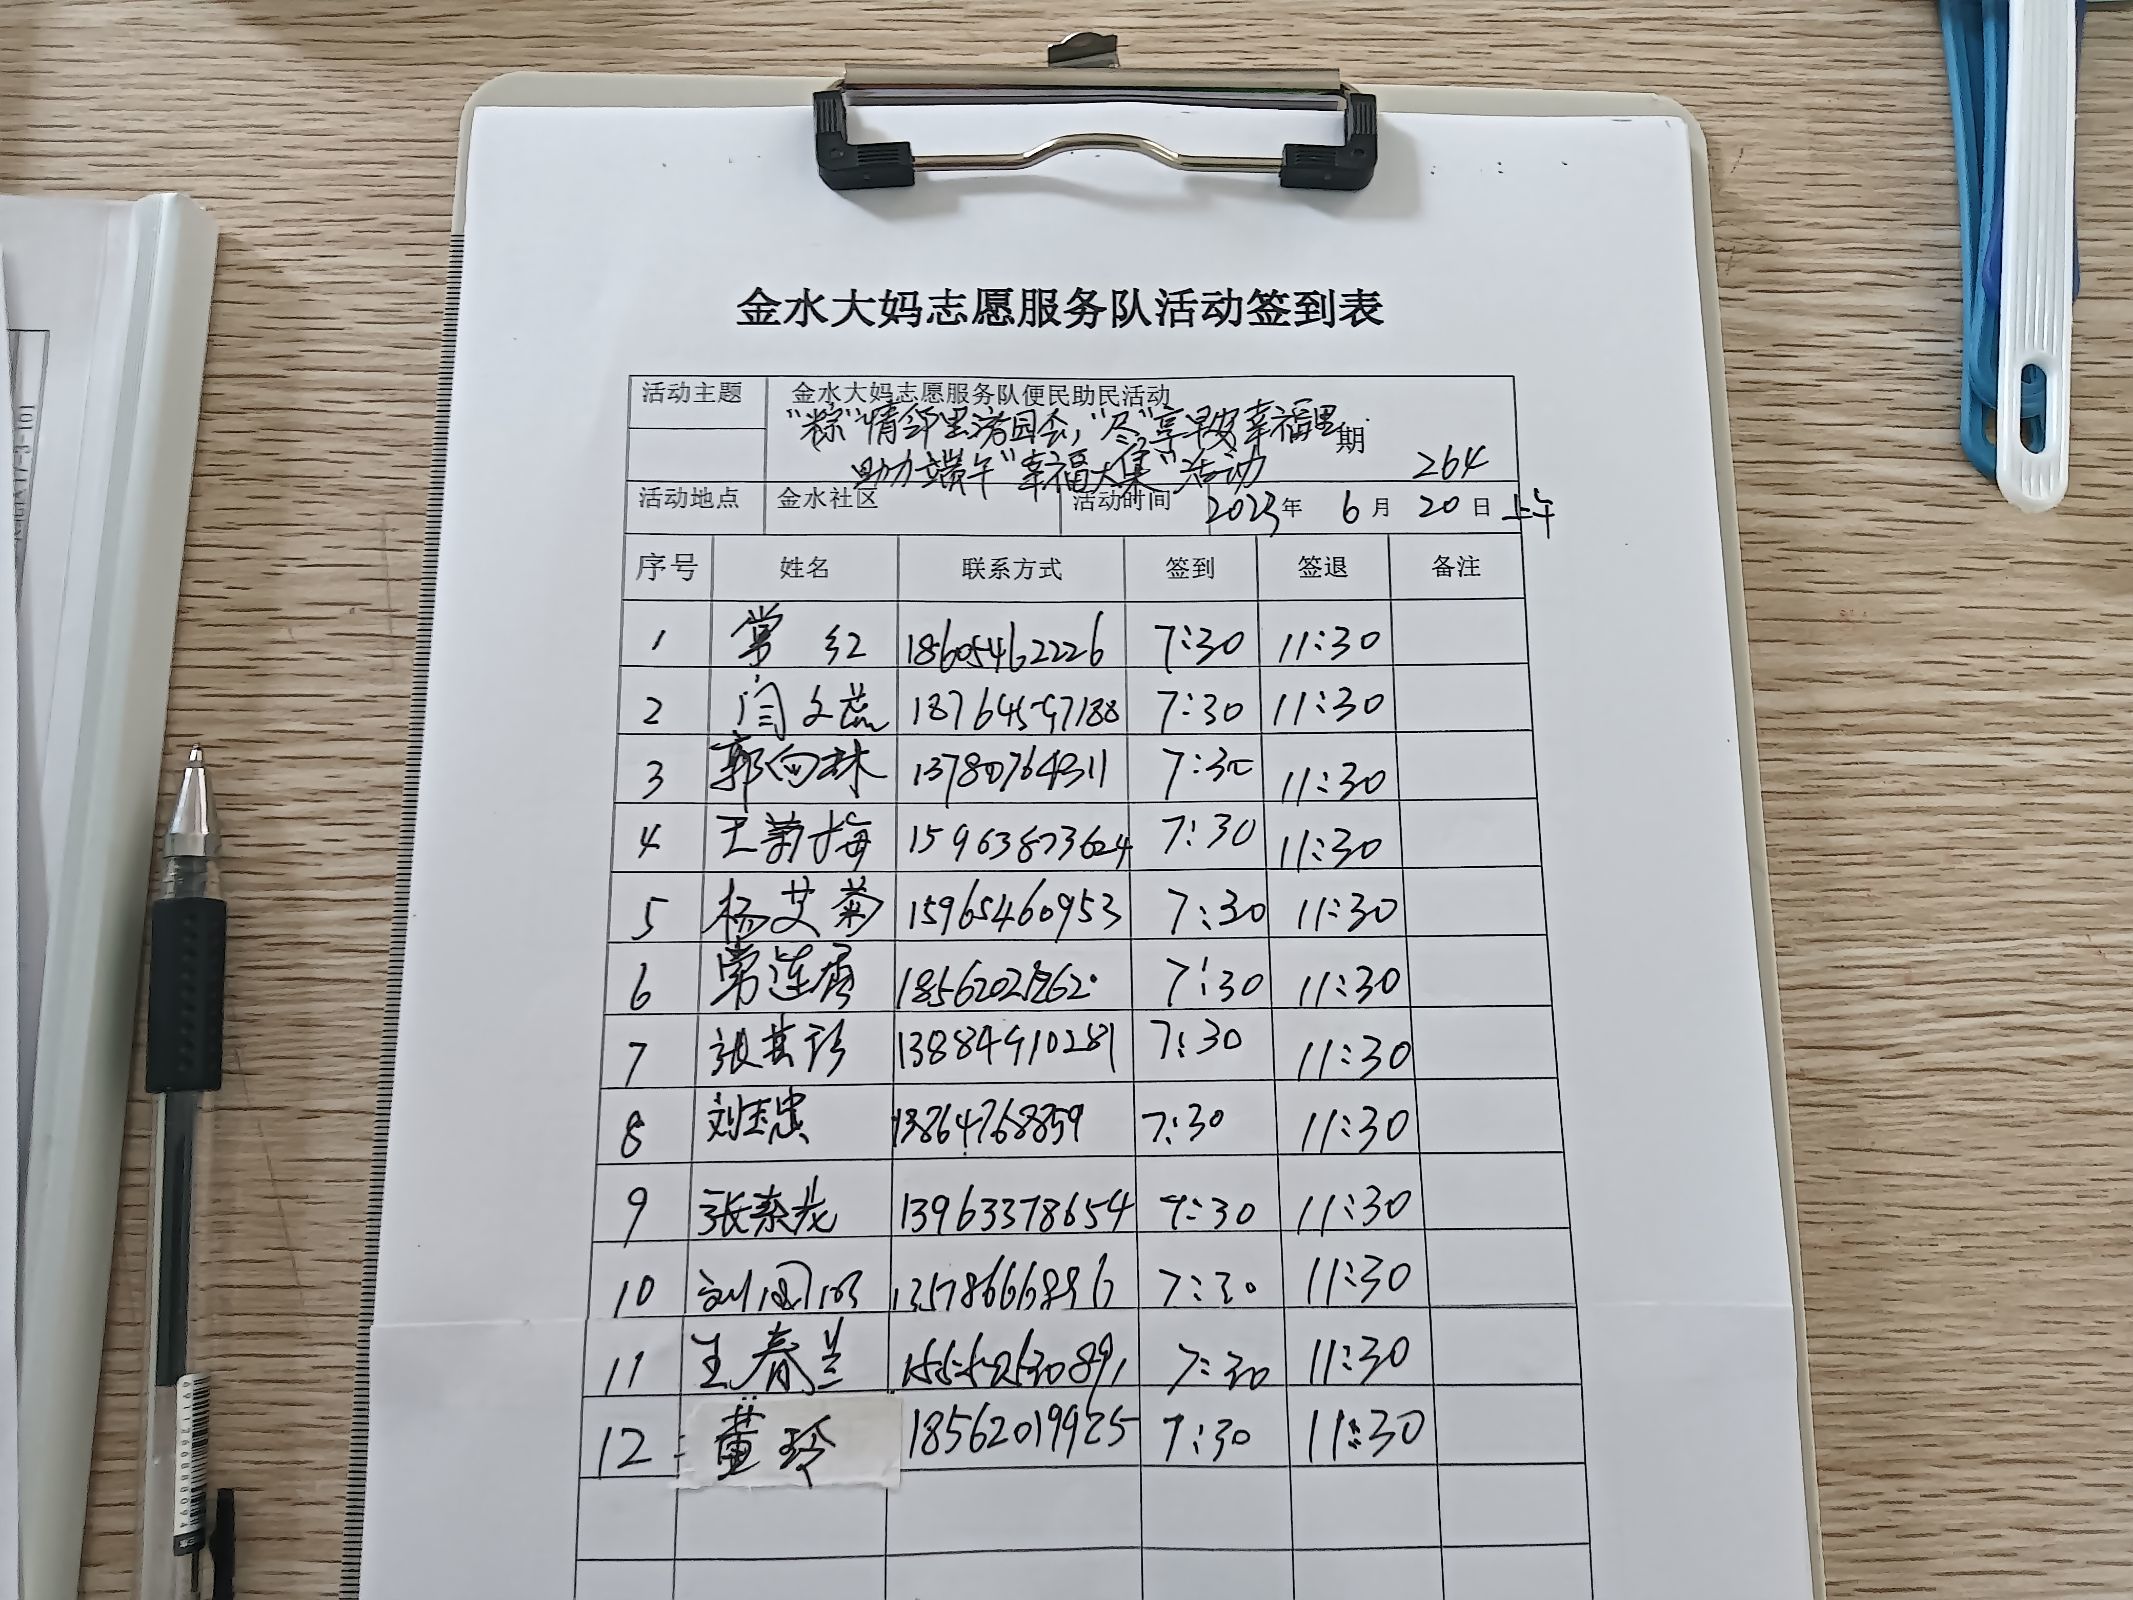 金水大妈志愿服务队活动签到表
活动主题 金水大妈志愿服务队便民助民活动
"粽"情邻里游园会,"尽"享早安幸福里 期
助力端午"幸福大集"活动 264
活动地点 金水社区 活动时间 2023年 6月 20日 上午
序号 姓名 联系方式 签到 签退 备注
1 常红 18605462226 7:30 11:30
2 闫文燕 18764597188 7:30 11:30
3 郭向林 13780764311 7:30 11:30
4 王菊梅 15963873624 7:30 11:30
5 杨艾菊 15965460953 7:30 11:30
6 常连秀 7:30 11:30
7 张其珍 13884910281 7:30 11:30
8 刘玉忠 13864768859 7:30 11:30
9 张泰龙 13963378654 7:30 11:30
10 刘国明 13578666896 7:30 11:30
11 王春兰 7:30 11:30
12 董玲 18562019925 7:30 11:30